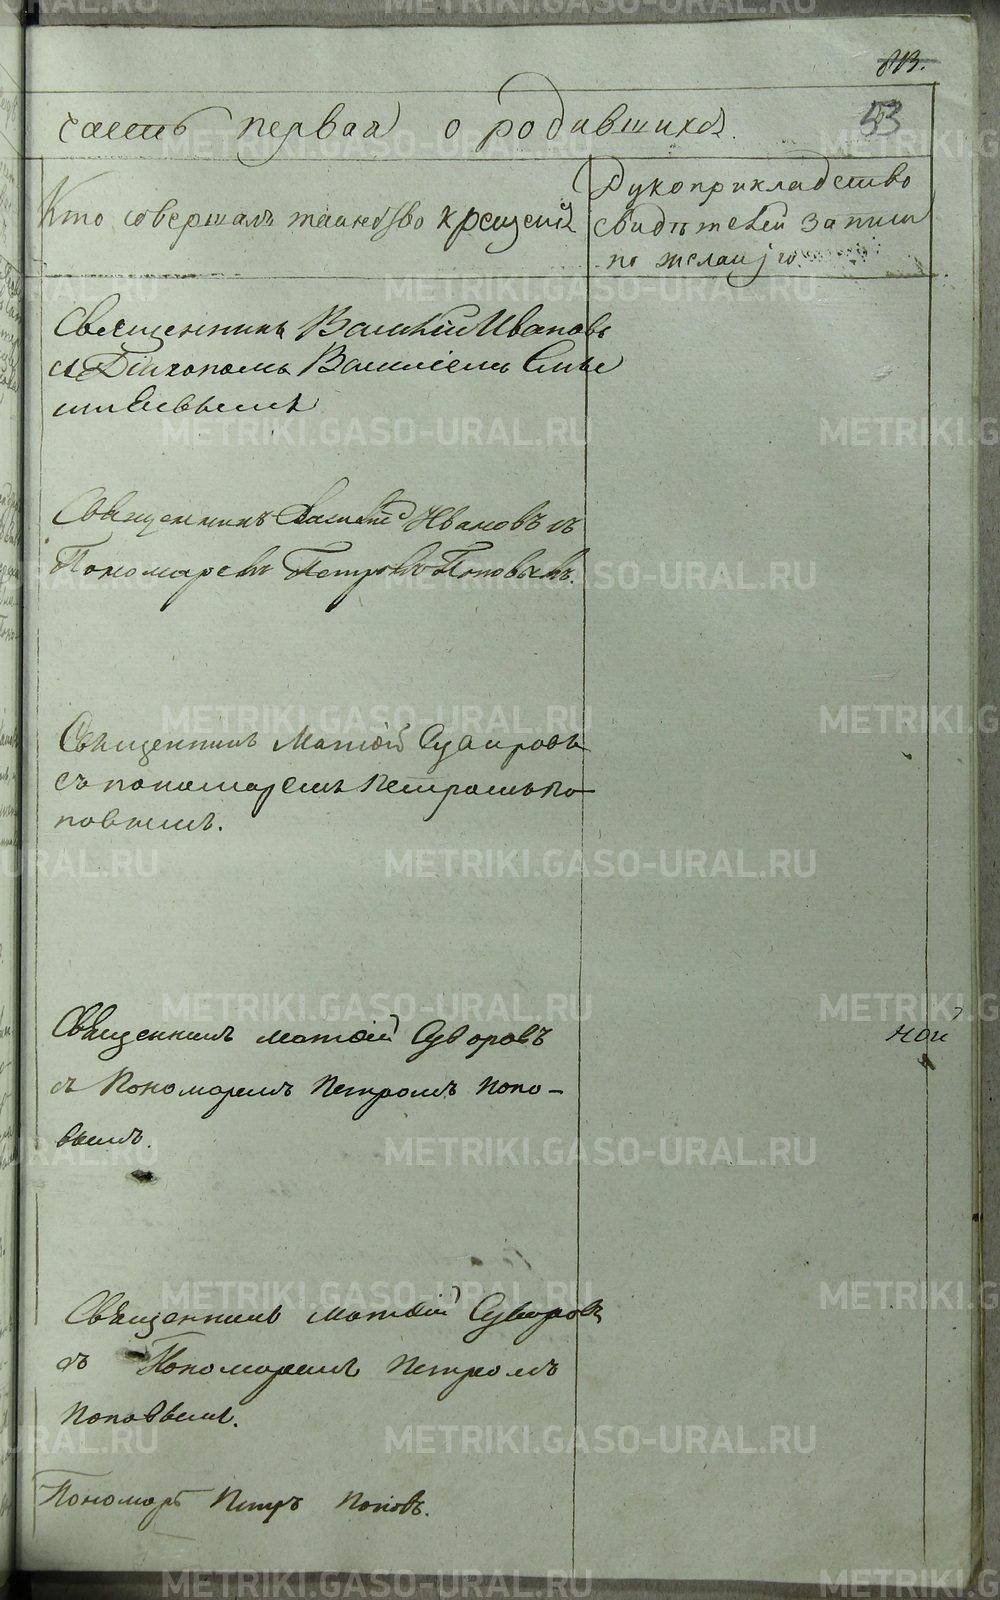 813.
53
часть первая о родившихся.
Кто совершалъ таинство крещенія
Рукоприкладство
свидѣтелей записи
по желанію
Священникъ Василій Ивановъ
съ Діакономъ Василіемъ
Священникъ Василій Ивановъ съ
Пономаремъ Петромъ Поповымъ.
Священникъ Матѳій Суворовъ
съ пономаремъ Петромъ По-
повымъ.
Священникъ Матѳій Суворовъ
съ Пономаремъ Петромъ Попо-
вымъ.
ной
Священникъ Матѳій Суворовъ
съ Пономаремъ Петромъ
Поповымъ.
Пономарь Петръ Поповъ.
METRIKI.GASO-URAL.RU